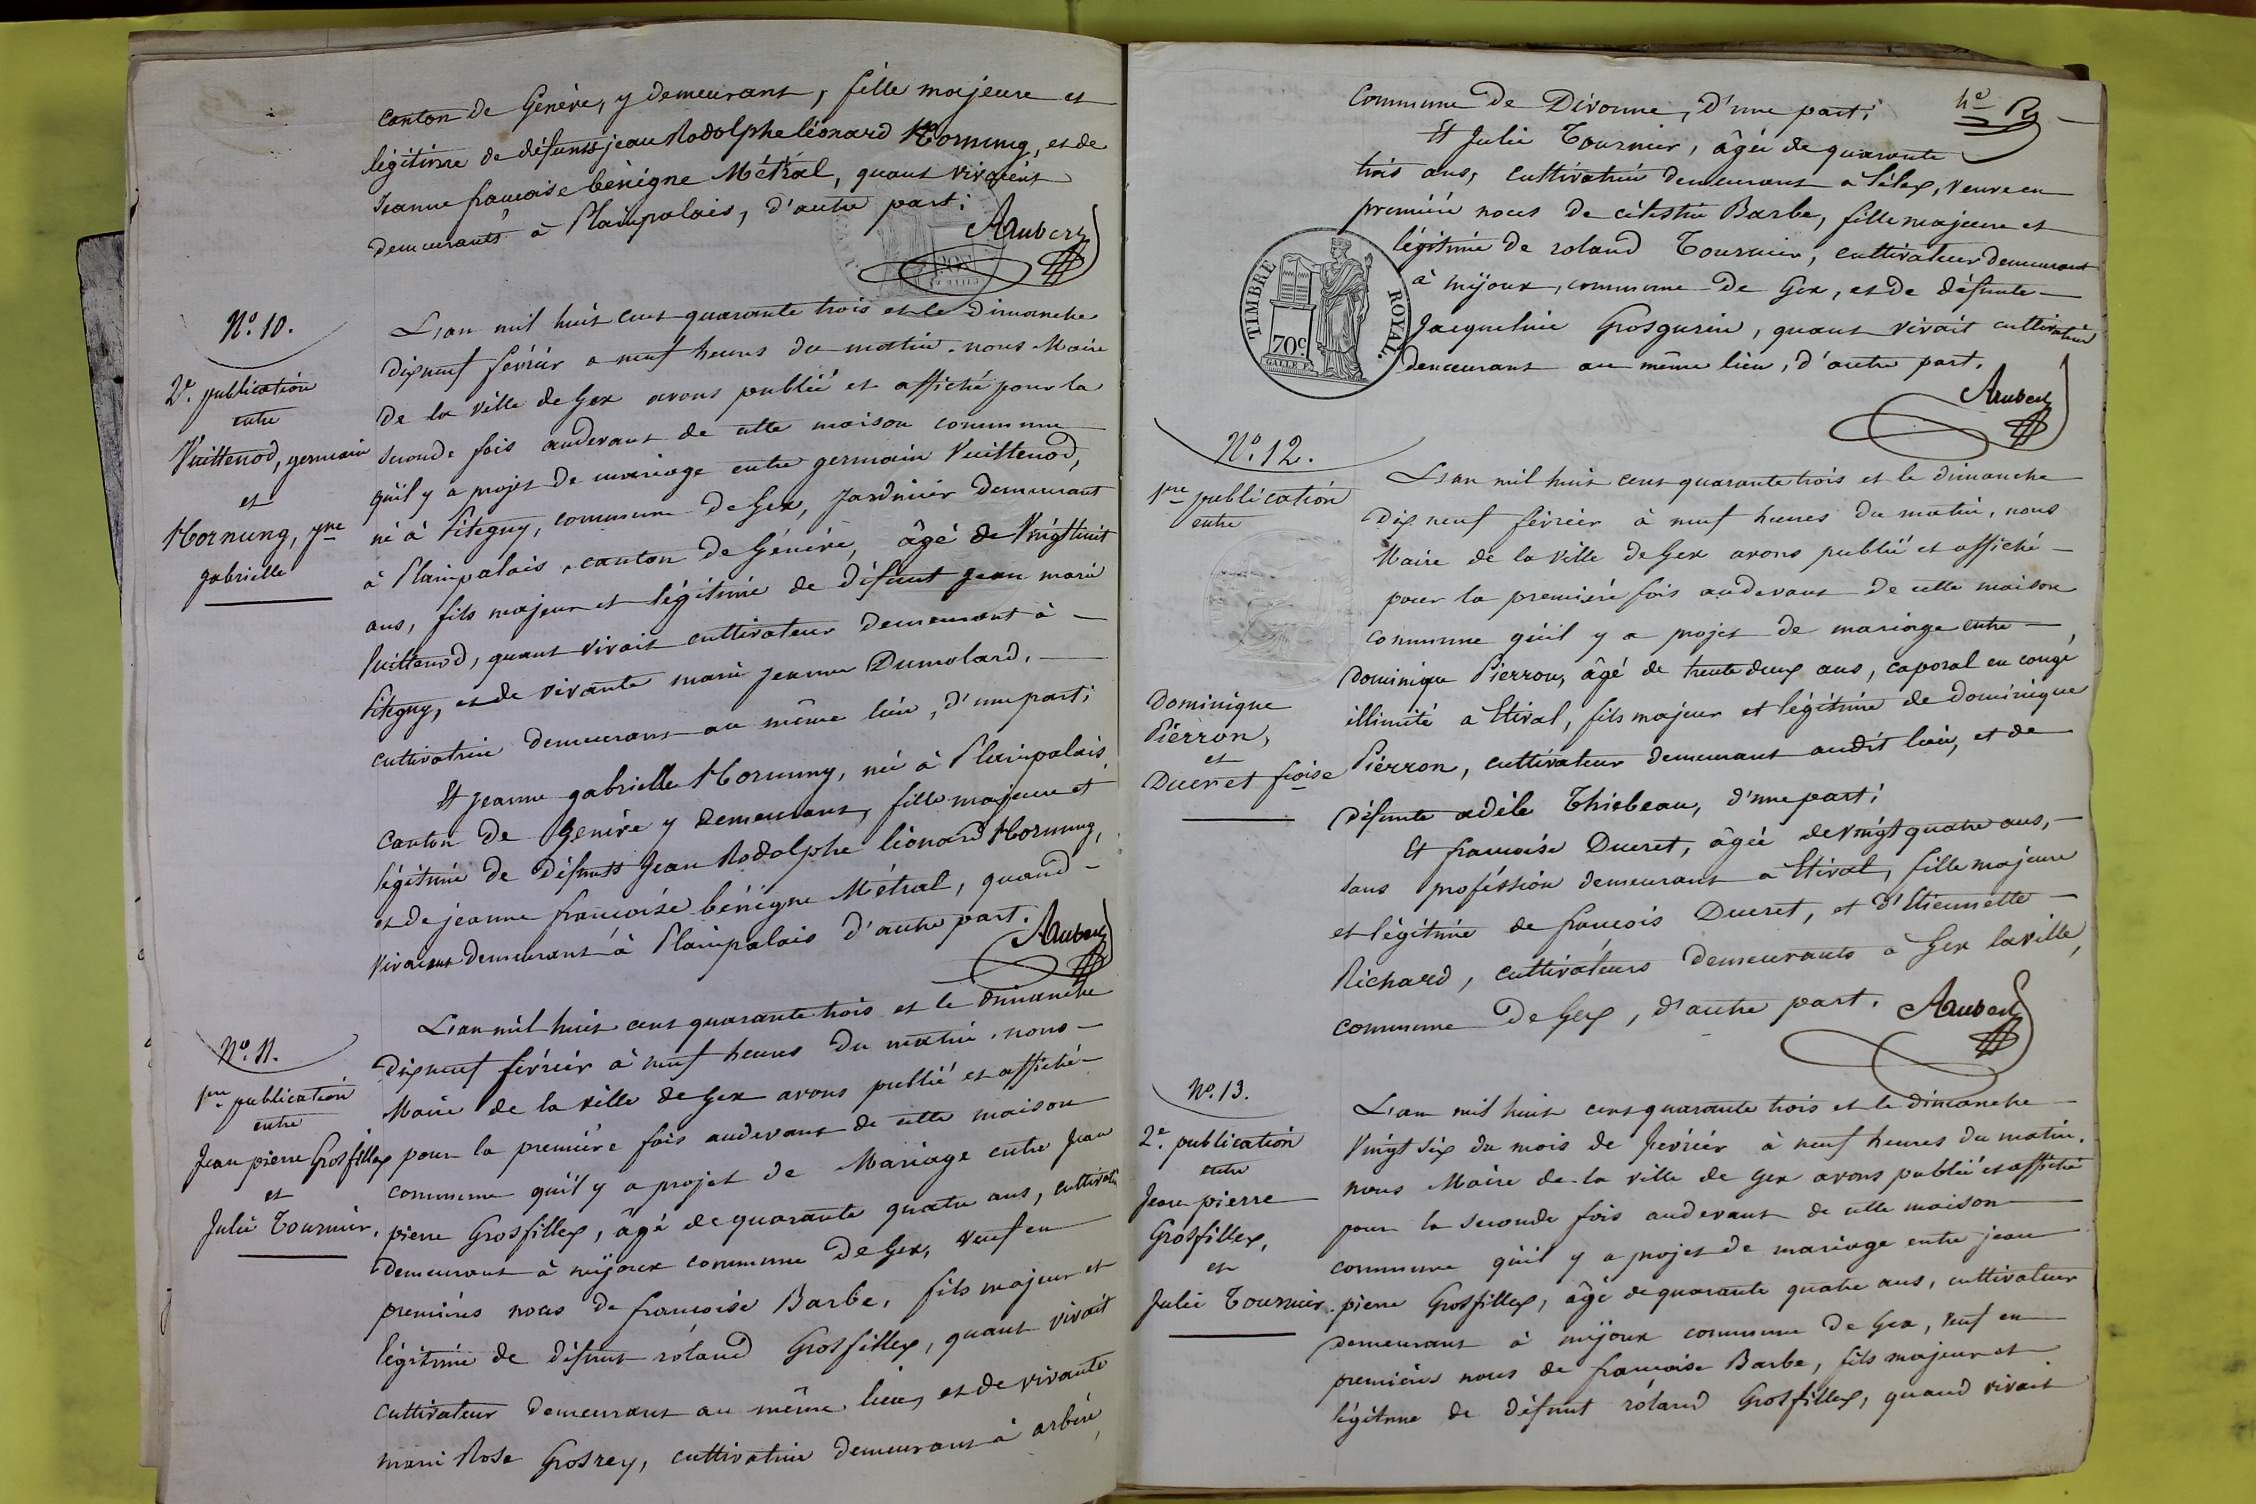 canton de Genève, y demeurant, fille majeure et
légitime de défunts jean Rodolphe léonard Hornung, et de
Jeanne françoise bénigne Métral, quant vivaient
demeurants à Plainpalais, d'autre part.
Aubert
N.o 10.
2.e publication
entre
Vuittenod, germain
et
Hornung, jne
gabrielle
L'an mil huit cent quarante trois et le Dimanche
dix neuf février a neuf heures du matin. nous Maire
de la ville de Gex avons publié et affiché pour la
seconde fois audevant de cette maison commune
qu'il y a projet de mariage entre germain Vuittenod,
né à Pitegny, commune de Gex, Jardinier demeurant
à Plainpalais, canton de Génève, âgé de Vingt huit
ans, fils majeur et légitime de défunt Jean marie
Vuittenod, quant vivait cultivateur demeurant à
Pitegny, et de vivante marie jeanne Dumolard,
cultivatrice demeurant au même lieu, d'une part;
Et jeanne gabrielle Hornung, né à Plainpalais,
Canton de Genève y demeurant, fille majeure et
légitime de défunts Jean Rodolphe léonard Hornung,
et de jeanne françoise bénigne Métral, quand
vivaient demeurant à Plainpalais d'autre part.
Aubert
N.o 11.
1re publication
entre
Jean pierre Grosfillex
et
Julie Tournier.
L'an mil huit cent quarante trois et le dimanche
dix neuf février à neuf heures du matin. nous
Maire de la ville de Gex avons publié et affiché
pour la première fois audevant de cette maison
commune qu'il y a projet de Mariage entre Jean
pierre Grosfillex, âgé de quarante quatre ans, cultivate
demeurant à mijoux commune de Gex, veuf en
premières noces de françoise Barbe, fils majeur et
légitime de défunt roland Grosfillex, quant vivait
cultivateur demeurant au même lieu, et de vivante
marie Rose Grosrey, cultivatrice demeurant à arbère,
Commune de Divonne, d'une part;
Et Julie Tournier, âgée de quarante
trois ans, cultivatrice demeurant à Lélex, veuve en
première noces de célestin Barbe, fille majeure et
légitime de roland Tournier, cultivateur demeurant
à mijoux, commune de Gex, et de défunte
Jacqueline Grosgurin, quant vivait cultivatrice
demeurant au même lieu, d'autre part.
TIMBRE ROYAL.
70c
Aubert
N.o 12.
1re publication
entre
Dominique
Pierron,
et
Ducret fçoise
L'an mil huit cent quarante trois et le dimanche
dix neuf février à neuf heures du matin, nous
Maire de la ville de Gex avons publié et affiché
pour la première fois audevant de cette maison
commune qu'il y a projet de mariage entre
Dominique Pierron, âgé de trente deux ans, caporal en congé
illimité à Etival, fils majeur et légitime de dominique
Pierron, cultivateur demeurant audit lieu, et de
défunte adèle Thiebeau, d'une part;
Et françoise Ducret, âgée de vingt quatre ans,
sans profession demeurant à Etival, fille majeure
et légitime de françois Ducret, et d'Etiennette
Richard, cultivateurs demeurants à Gex la ville,
commune de Gex, d'autre part.
Aubert
N.o 13.
2.e publication
entre
Jean pierre
Grosfillex,
et
Julie Tournier.
L'an mil huit cent quarante trois et le dimanche
vingt six du mois de fevrier à neuf heures du matin.
nous Maire de la ville de Gex avons publié et affiché
pour la seconde fois audevant de cette maison
commune qu'il y a projet de mariage entre jean
pierre Grosfillex, âgé de quarante quatre ans, cultivateur
demeurant à mijoux commune de Gex, veuf en
premières noces de françoise Barbe, fils majeur et
légitime de défunt roland Grosfillex, quand vivait